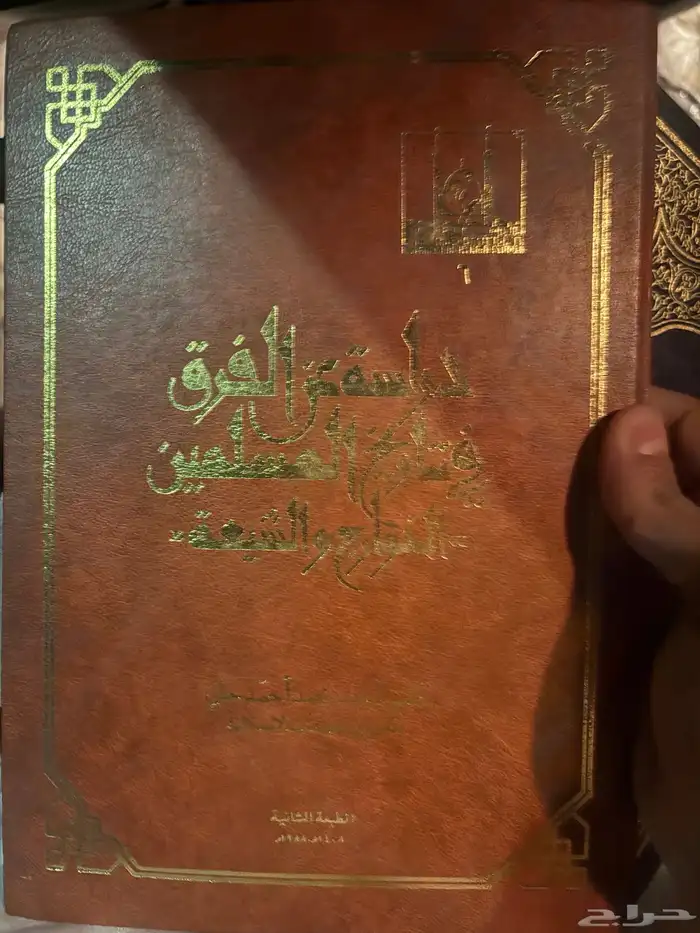 ٦
دراسة عن الفرق
في تاريخ المسلمين
"الخوارج والشيعة"
أحمد
الطبعة الثانية
١٤٠٨هـ-١٩٨٨م
حراج